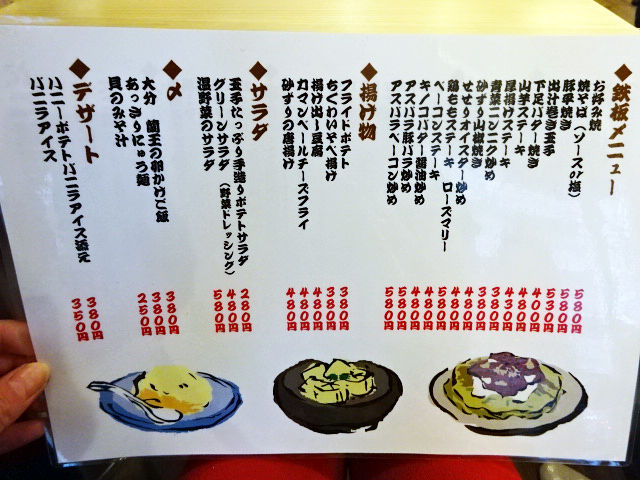 ◆鉄板メニュー
お好み焼 580円
焼そば(ソースor塩) 580円
豚平焼き 530円
出汁巻き玉子 400円
下足バター焼き 480円
山芋ステーキ 380円
厚揚げステーキ 430円
青菜ニンニク炒め 480円
砂ずり山椒焼き 380円
せせりオイスター炒め 480円
鶏ももステーキ ローズマリー 480円
ベーコンステーキ 480円
キノコバター醤油炒め 480円
アスパラ豚バラ炒め 580円
アスパラベーコン炒め 580円
◆揚げ物
フライドポテト 380円
ちくわいそべ揚げ 380円
揚げ出し豆腐 480円
カマンベールチーズフライ 480円
砂ずりの唐揚げ 480円
◆サラダ
玉子たっぷり手造りポテトサラダ 280円
グリーンサラダ(野菜ドレッシング) 480円
温野菜のサラダ 580円
◆〆
大分 蘭王の卵かけご飯 380円
あっさりにゅう麺 380円
貝のみそ汁 250円
◆デザート
ハニーポテトバニラアイス添え 380円
バニラアイス 350円